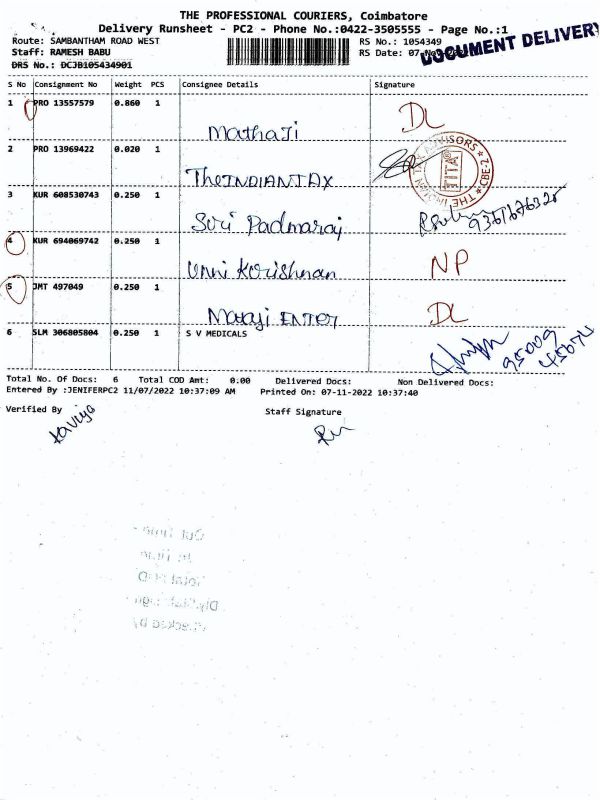 THE PROFESSIONAL COURIERS, Coimbatore
Delivery Runsheet - PC2 - Phone No.:0422-3505555 - Page No.:1
Route: SAMBANTHAM ROAD WEST RS No.: 1054349
Staff: RAMESH BABU RS Date: 07-Nov
DOCUMENT DELIVERY
DRS No.: DCJB105434901
S No Consignment No Weight PCS Consignee Details Signature
1 PRO 13557579 0.860 1
Mathaji DL
2 PRO 13969422 0.020 1
THE INDIAN TAX ADVISORS ★ CBE-2 ★
TITA
TheINDIANTAX
3 KUR 608530743 0.250 1
Siri Padmaraj
4 KUR 694069742 0.250 1
Unni Korishnan NP
5 JMT 497049 0.250 1
Mataji ENTER DL
6 SLM 306805804 0.250 1 S V MEDICALS
95009
45674
Total No. Of Docs: 6 Total COD Amt: 0.00 Delivered Docs: Non Delivered Docs:
Entered By :JENIFERPC2 11/07/2022 10:37:09 AM Printed On: 07-11-2022 10:37:40
Verified By Staff Signature
kaviya